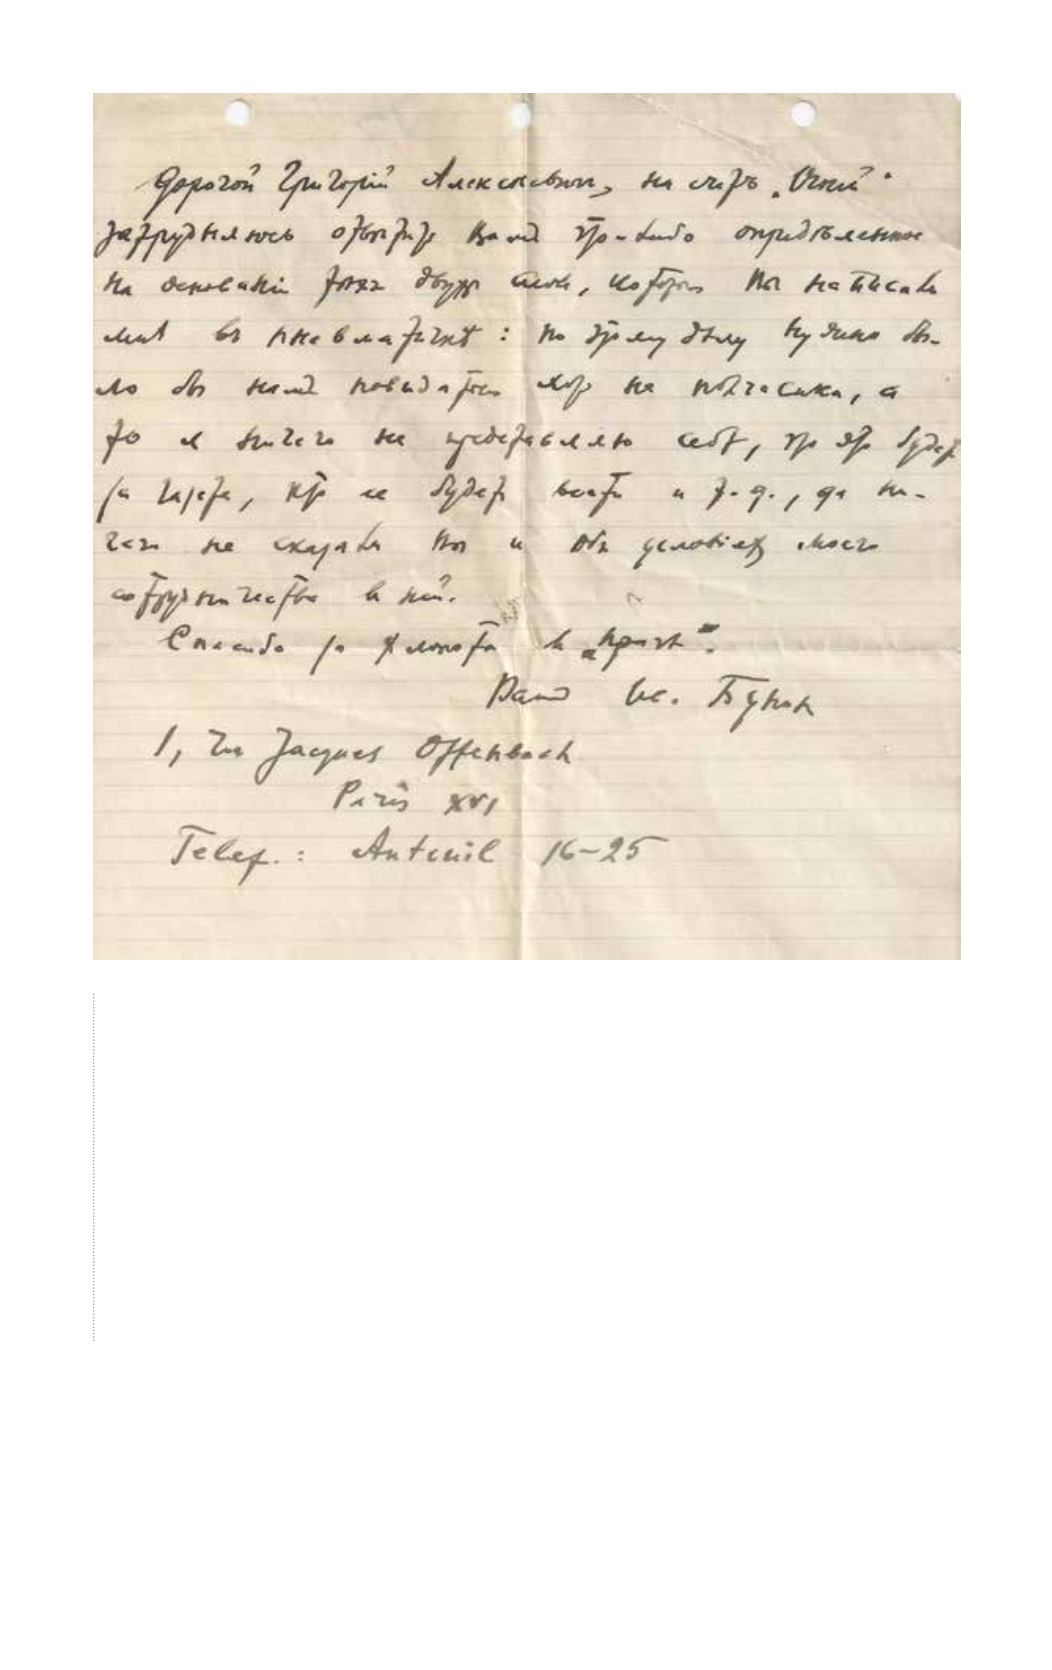 Дорогой Григорій Алексѣевичъ, на счетъ „Огней"
затрудняюсь отвѣтить Вамъ что-либо опредѣленное
на основаніи тѣхъ двухъ словъ, которыя Вы написали
мнѣ въ пневматичкѣ: по этому дѣлу нужно бы-
ло бы намъ повидаться хоть на полчасика, а
то я ничего не представляю себѣ, что это будетъ
за газета, кто ее будетъ вести и т. д., да ни-
чего не сказали Вы и объ условіяхъ моего
сотрудничества в ней.
Спасибо за хлопоты в
Вашъ Ив. Бунин
1, rue Jacques Offenbach
Paris XVI
Telef.: Auteuil 16-25